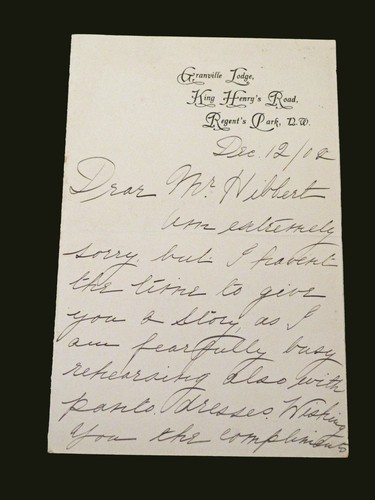 Granville Lodge,
King Henry's Road,
Regent's Park, N.W.
Dec. 12/02
Dear Mr. Hibbert
Am extremely
sorry, but I havent
the time to give
you a story, as I
am fearfully busy
rehearsing also with
panto. dresses. Wishing
You the compliments